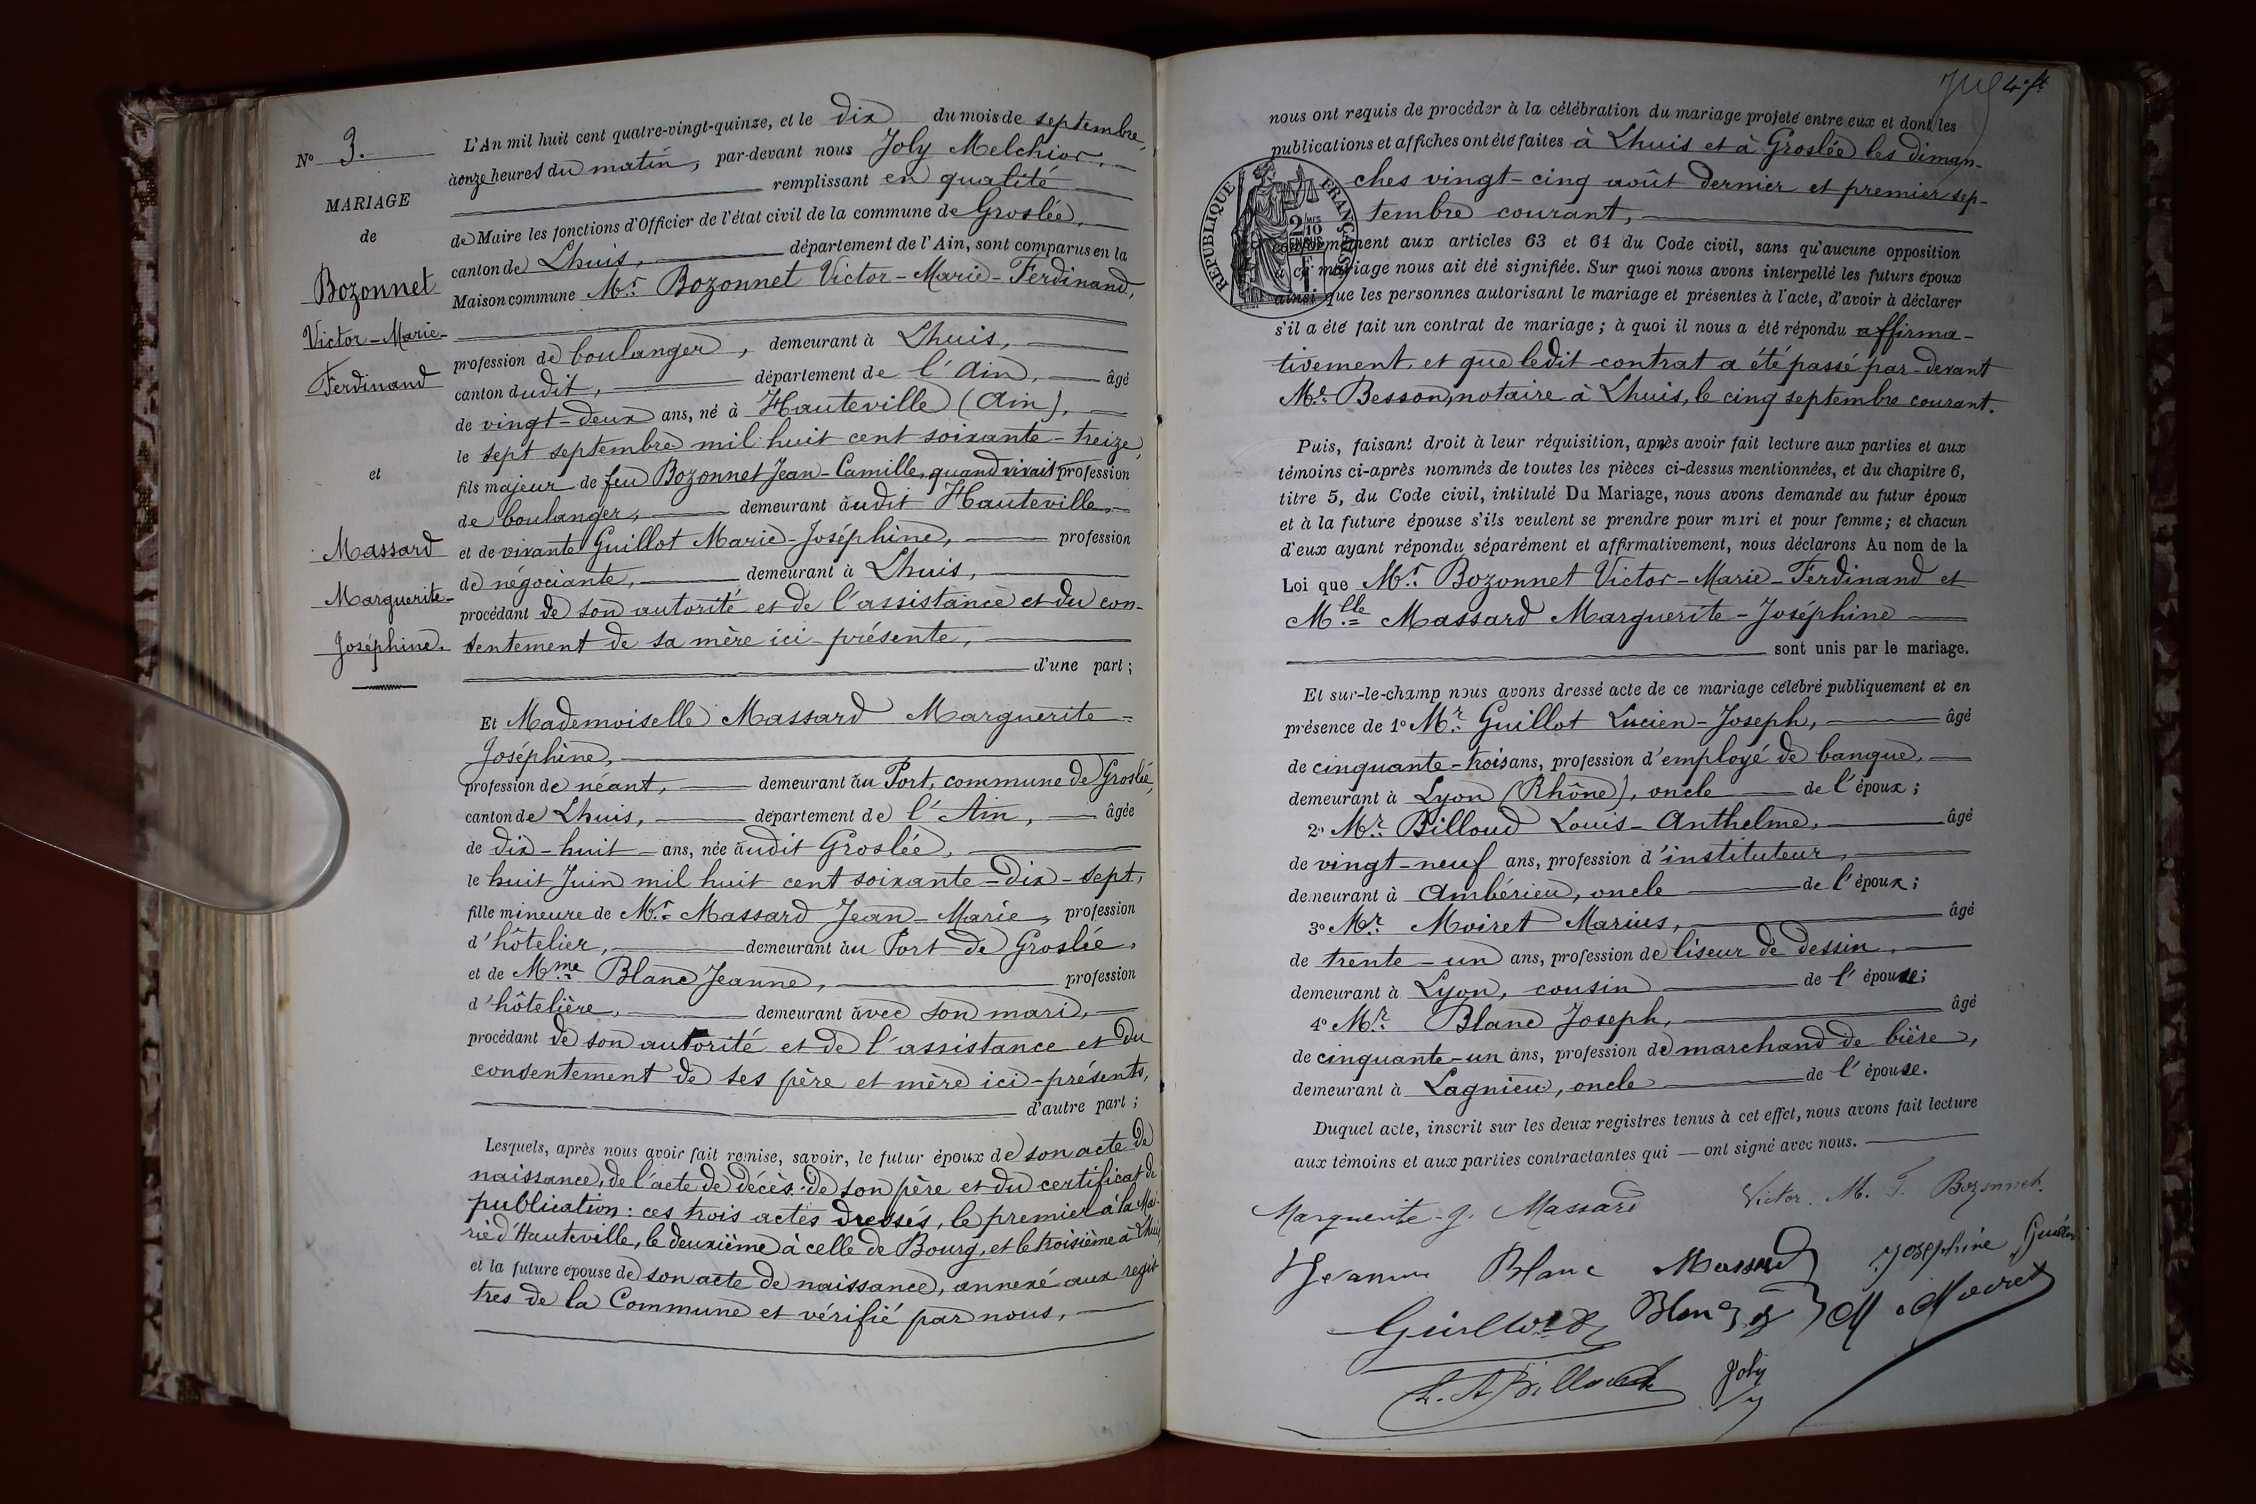 N° 3.
MARIAGE
de
Bozonnet
Victor-Marie-
Ferdinand
et
Massard
Marguerite-
Joséphine.
L'An mil huit cent quatre-vingt-quinze, et le dix du mois de septembre,
à onze heures du matin, par-devant nous Joly Melchior,
remplissant en qualité
de Maire les fonctions d'Officier de l'état civil de la commune de Groslée,
canton de Lhuis, département de l'Ain, sont comparus en la
Maison commune Mr. Bozonnet Victor-Marie-Ferdinand,
profession de boulanger, demeurant à Lhuis,
canton dudit, département de l'Ain, âgé
de vingt-deux ans, né à Hauteville (Ain),
le sept septembre mil huit cent soixante-treize,
fils majeur de feu Bozonnet Jean-Camille, quand vivait profession
de boulanger, demeurant audit Hauteville,
et de vivante Guillot Marie-Joséphine, profession
de négociante, demeurant à Lhuis,
procédant de son autorité et de l'assistance et du con-
sentement de sa mère ici présente,
d'une part;
Et Mademoiselle Massard Marguerite-
Joséphine,
profession de néant, demeurant au Port, commune de Groslée,
canton de Lhuis, département de l'Ain, âgée
de dix-huit ans, née audit Groslée,
le huit Juin mil huit cent soixante-dix-sept,
fille mineure de Mr. Massard Jean-Marie, profession
d'hôtelier, demeurant au Port de Groslée,
et de Mme Blanc Jeanne, profession
d'hôtelière, demeurant avec son mari,
procédant de son autorité et de l'assistance et du
consentement de ses père et mère ici-présents,
d'autre part;
Lesquels, après nous avoir fait remise, savoir, le futur époux de son acte de
naissance, de l'acte de décès de son père et du certificat de
publication: ces trois actes dressés, le premier à la Mai-
rie d'Hauteville, le deuxième à celle de Bourg, et le troisième à Lhuis,
et la future épouse de son acte de naissance, annexé aux regis-
tres de la Commune et vérifié par nous,
nous ont requis de procéder à la célébration du mariage projeté entre eux et dont les
publications et affiches ont été faites à Lhuis et à Groslée les diman-
ches vingt-cinq août dernier et premier sep-
tembre courant,
RÉPUBLIQUE FRANÇAISE
2/10
EN SUS
conformément aux articles 63 et 64 du Code civil, sans qu'aucune opposition
à ce mariage nous ait été signifiée. Sur quoi nous avons interpellé les futurs époux
ainsi que les personnes autorisant le mariage et présentes à l'acte, d'avoir à déclarer
s'il a été fait un contrat de mariage; à quoi il nous a été répondu affirma-
tivement, et que ledit contrat a été passé par-devant
Me. Besson, notaire à Lhuis, le cinq septembre courant.
Puis, faisant droit à leur réquisition, après avoir fait lecture aux parties et aux
témoins ci-après nommés de toutes les pièces ci-dessus mentionnées, et du chapitre 6,
titre 5, du Code civil, intitulé Du Mariage, nous avons demandé au futur époux
et à la future épouse s'ils veulent se prendre pour mari et pour femme; et chacun
d'eux ayant répondu séparément et affirmativement, nous déclarons Au nom de la
Loi que Mr. Bozonnet Victor-Marie-Ferdinand et
Mlle Massard Marguerite-Joséphine
sont unis par le mariage.
Et sur-le-champ nous avons dressé acte de ce mariage célébré publiquement et en
présence de 1° Mr. Guillot Lucien-Joseph, âgé
de cinquante-trois ans, profession d'employé de banque,
demeurant à Lyon (Rhône), oncle de l'époux;
2° Mr. Billoud Louis-Anthelme, âgé
de vingt-neuf ans, profession d'instituteur,
demeurant à Ambérieu, oncle de l'époux;
3° Mr. Moiret Marius, âgé
de trente-un ans, profession de liseur de dessin,
demeurant à Lyon, cousin de l'épouse;
4° Mr. Blanc Joseph, âgé
de cinquante-un ans, profession de marchand de bière,
demeurant à Lagnieu, oncle de l'épouse.
Duquel acte, inscrit sur les deux registres tenus à cet effet, nous avons fait lecture
aux témoins et aux parties contractantes qui — ont signé avec nous.
Marguerite-J. Massard Victor. M. F. Bozonnet.
Jeanne Blanc Massard Joséphine Guillot
Guillot Blanc J M. Moiret
L. A Billoud Joly